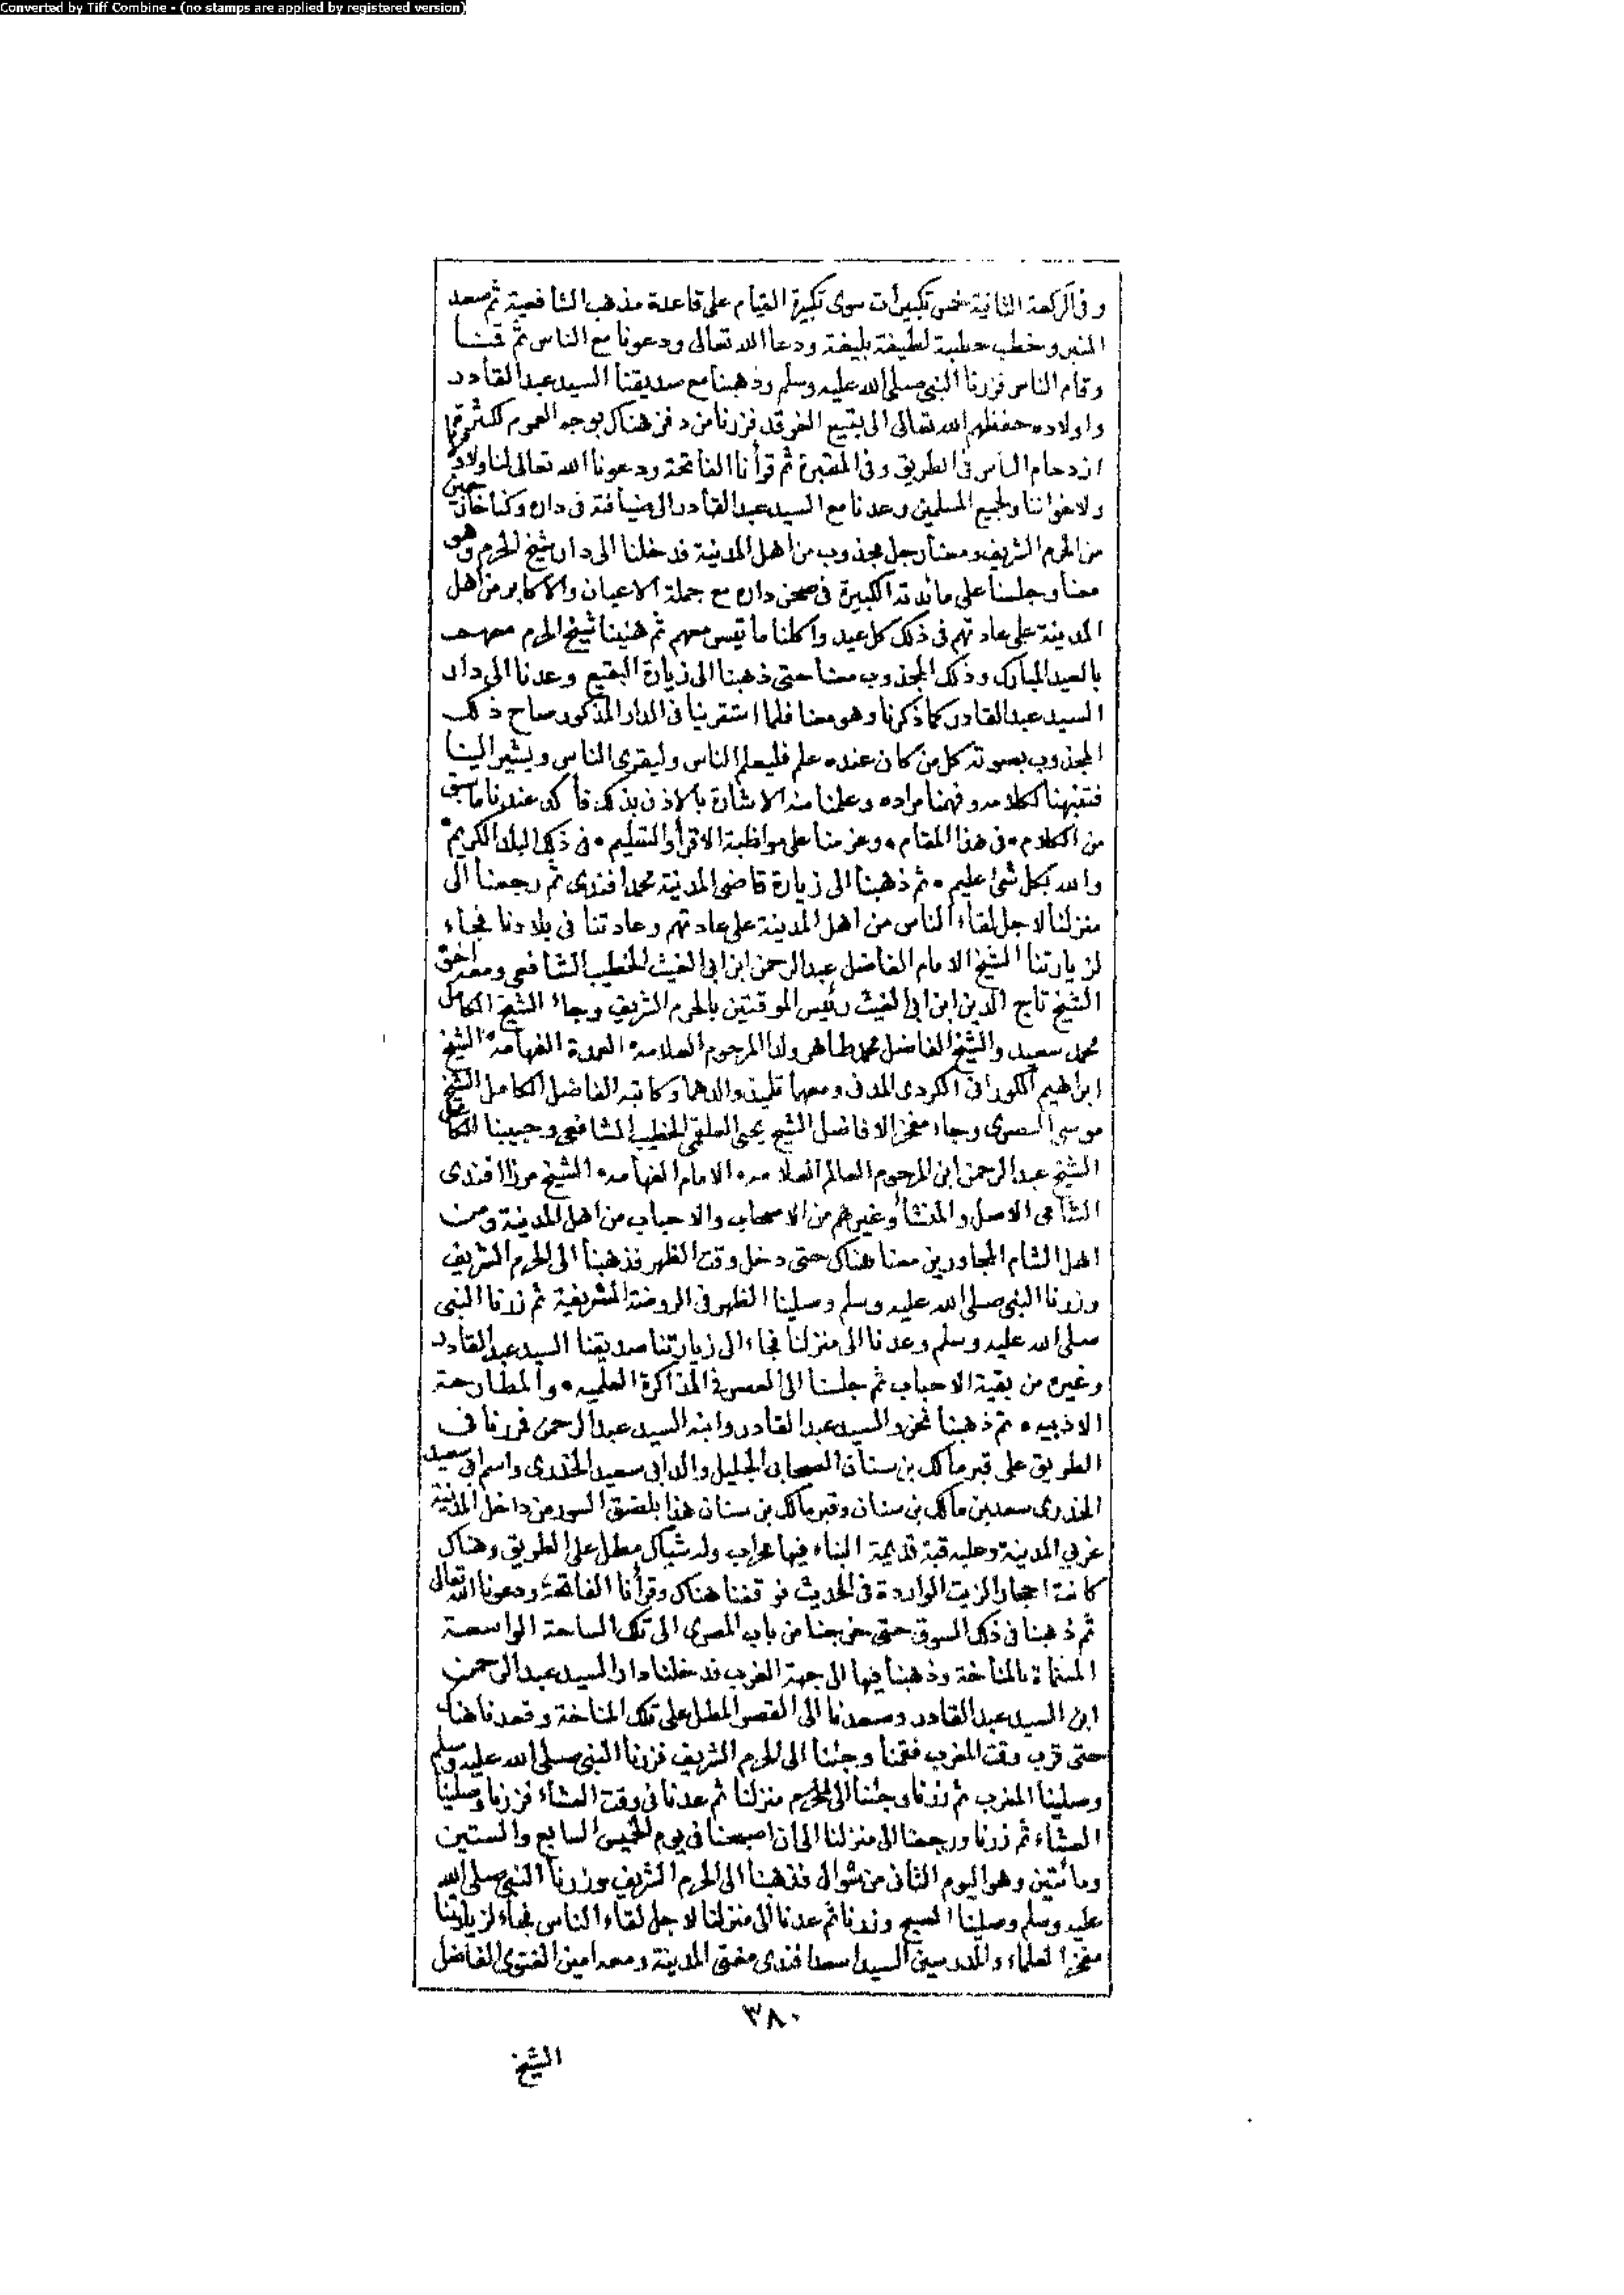 Converted by Tiff Combine - (no stamps are applied by registered version)
وفى الركعة الثانية خمس تكبيرات سوى تكبيرة القيام على قاعدة مذهب الشافعية ثم صعد
المنبر وخطب خطبة لطيفة بليغة ودعا الله تعالى ودعونا مع الناس ثم قمنا
وقام الناس فزرنا النبى صلى الله عليه وسلم وذهبنا مع صديقنا السيد عبد القادر
واولاده حفظهم الله تعالى الى بقيع الغرقد فزرنا من دفن هناك بوجه العموم لكثرة
ازدحام الناس فى الطريق وفى المقبرة ثم قرأنا الفاتحة ودعونا الله تعالى لنا ولاولادنا
ولاخواننا ولجميع المسلمين وعدنا مع السيد عبد القادر الى ضيافته فى داره وكنا خارجين
من الحرم الشريف ومعنا رجل مجذوب من اهل المدينة فدخلنا الى دار شيخ الحرم وهو
معنا وجلسنا على مائدته الكبيرة فى صحن داره مع جملة الاعيان والاكابر من اهل
المدينة على عادتهم فى ذلك كل عيد واكلنا ما تيسر معهم ثم هنينا شيخ الحرم معهم
بالعيد المبارك وذلك المجذوب معنا حتى ذهبنا الى زيارة البقيع وعدنا الى دار
السيد عبد القادر كما ذكرنا وهو معنا فلما استقرينا فى الدار المذكور صاح ذلك
المجذوب بصوته كل من كان عنده علم فليعلم الناس وليقرى الناس ويشير الينا
فتنبهنا لكلامه وفهمنا مراده وعلمنا منه الاشارة بالاذن بذلك فأكد عندنا ما سبق
من الكلام ۰ فى هذا المقام ۰ وعزمنا على مواظبة الاقرأ والتعليم ۰ فى ذلك البلد الكريم ۰
والله بكل شئ عليم ۰ ثم ذهبنا الى زيارة قاضى المدينة محمد افندى ثم رجعنا الى
منزلنا لاجل لقاء الناس من اهل المدينة على عادتهم وعادتنا فى بلادنا فجاء
لزيارتنا الشيخ الامام الفاضل عبد الرحمن ابن ابى الغيث الخطيب الشافعى ومعه اخوه
الشيخ تاج الدين ابن ابى الغيث رئيس الموقتين بالحرم الشريف وجاء الشيخ الكامل
محمد سعيد والشيخ الفاضل محمد طاهر ولدا المرحوم العلامه العمدة الفهامه الشيخ
ابراهيم الكورانى الكردى المدنى ومعهما تلميذ والدهما وكاتبه الفاضل الكامل الشيخ
موسى البصرى وجاء مفخر الافاضل الشيخ يحيى العلقمى الخطيب الشافعى وحبيبنا الكامل
الشيخ عبد الرحمن ابن المرحوم العالم العلامه ۰ الامام الفهامه ۰ الشيخ مرزا افندى
الشامى الاصل والمنشأ وغيرهم من الاصحاب والاحباب من اهل المدينة ومن
اهل الشام المجاورين معنا هناك حتى دخل وقت الظهر فذهبنا الى الحرم الشريف
وزرنا النبى صلى الله عليه وسلم وصلينا الظهر فى الروضة الشريفية ثم زرنا النبى
صلى الله عليه وسلم وعدنا الى منزلنا فجاء الى زيارتنا صديقنا السيد عبد القادر
وغيره من بقية الاحباب ثم جلسنا الى العصر فى المذاكرة العلميه ۰ والمطارحة
الادبيه ۰ ثم ذهبنا نحن والسيد عبد القادر وابنه السيد عبد الرحمن فمررنا فى
الطريق على قبر مالك بن سنان الصحابى الجليل والد ابى سعيد الخدرى واسم ابى سعيد
الخدرى سعد بن مالك بن سنان وقبر مالك بن سنان هذا بلصق السور من داخل المدينة
غربي المدينة وعليه قبة قديمة البناء فيها محراب وله شباك مطل على الطريق وهناك
كانت احجار الزيت الواردة فى الحديث فوقفنا هناك وقرأنا الفاتحة ودعونا الله تعالى
ثم ذهبنا فى ذلك السوق حتى خرجنا من باب المصرى الى تلك الساحة الواسعة
المسماة بالمناخة وذهبنا فيها الى جهة الغرب فدخلنا دار السيد عبد الرحمن
ابن السيد عبد القادر وصعدنا الى القصر المطل على تلك المناخة وقعدنا هناك
حتى قرب وقت المغرب فقمنا وجئنا الى الحرم الشريف فزرنا النبى صلى الله عليه وسلم
وصلينا المغرب ثم زرنا وجئنا الى الحرم منزلنا ثم عدنا فى وقت العشاء فزرنا وصلينا
العشاء ثم زرنا ورجعنا الى منزلنا الى ان اصبحنا فى يوم الخميس السابع والستين
ومائتين وهو اليوم الثانى من شوال فذهبنا الى الحرم الشريف وزرنا النبى صلى الله
عليه وسلم وصلينا الصبح وزرنا ثم عدنا الى منزلنا لاجل لقاء الناس فجاء لزيارتنا
مفخر العلماء والمدرسين السيد اسعد افندى مفتى المدينة ومعه امين الفتوى الفاضل
٣٨٠
الشيخ